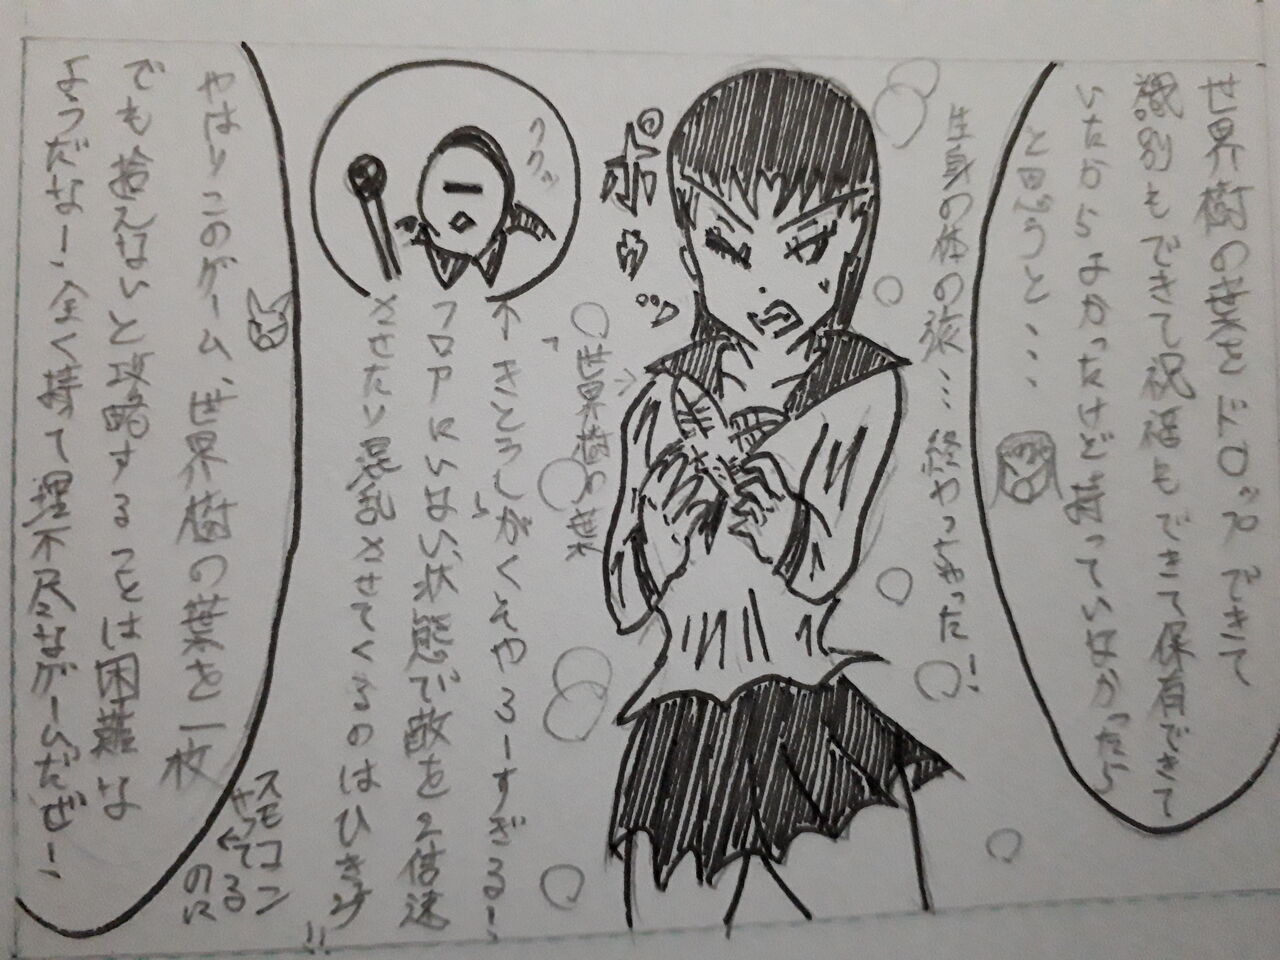 世界樹の葉をドロップできて
識別もできて祝福もできて保有できて
いたからよかったけど持っていなかったら
と思うと、、、
生身の体の旅…終やっちゃった!
ポゥッ
○世界樹の葉
ククッ
↑きとうしがくそやろーすぎる!
フロアにいない状態で敵を2倍速
させたり混乱させてくるのはひきょう!!
スモコン
やってる
のに
やはりこのゲーム、世界樹の葉を一枚
でも拾えないと攻略することは困難な
ようだな!全く持って理不尽なゲームだぜ!